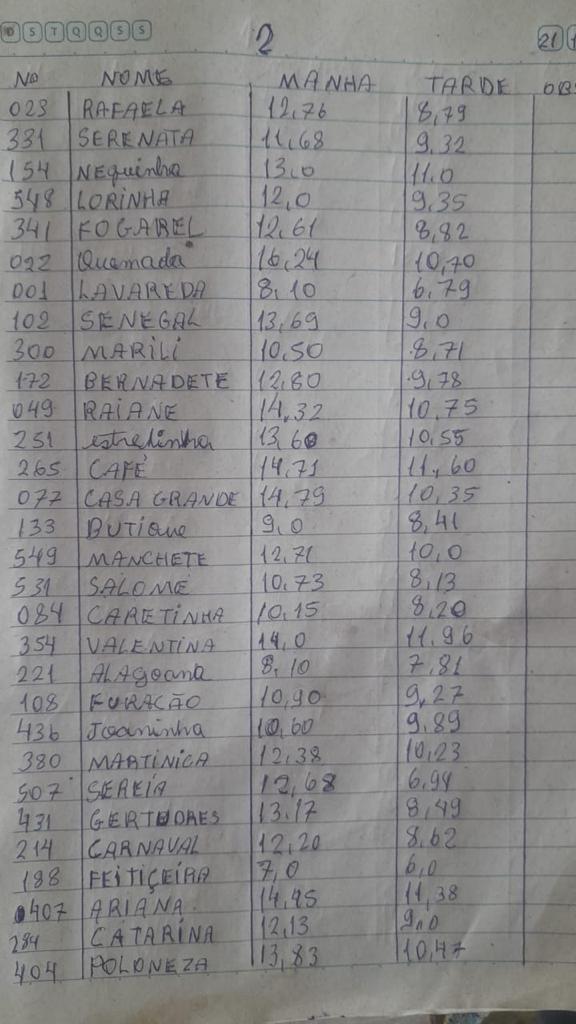 D S T Q Q S S
2
21
No NOME MANHA TARDE OBS
023 RAFAELA 12,76 8,79
331 SERENATA 11,68 9,32
154 Nequinha 13,0 11,0
548 LORINHA 12,0 9,35
341 FOGAREL 12,61 8,82
022 Quemada 16,24 10,70
001 LAVAREDA 8,10 6,79
102 SENEGAL 13,69 9,0
300 MARILI 10,50 8,71
172 BERNADETE 12,80 9,78
049 RAIANE 14,32 10,75
251 estrelinha 13,60 10,55
265 CAFÉ 14,71 11,60
077 CASA GRANDE 14,79 10,35
133 BUTique 9,0 8,41
549 MANCHETE 12,71 10,0
531 SALOMÉ 10,73 8,13
084 CARETINHA 10,15 8,20
354 VALENTINA 14,0 11,96
221 ALAgoana 8,10 7,81
108 FURACÃO 10,90 9,27
436 Joaninha 10,60 9,89
380 MARTINICA 12,38 10,23
507 SEREIA 12,68 6,94
431 GERTUDRES 13,17 8,49
214 CARNAVAL 12,20 8,62
188 FEITIÇEIRA 7,0 6,0
407 ARIANA 14,45 11,38
284 CATARINA 12,13 9,0
404 POLONEZA 13,83 10,47